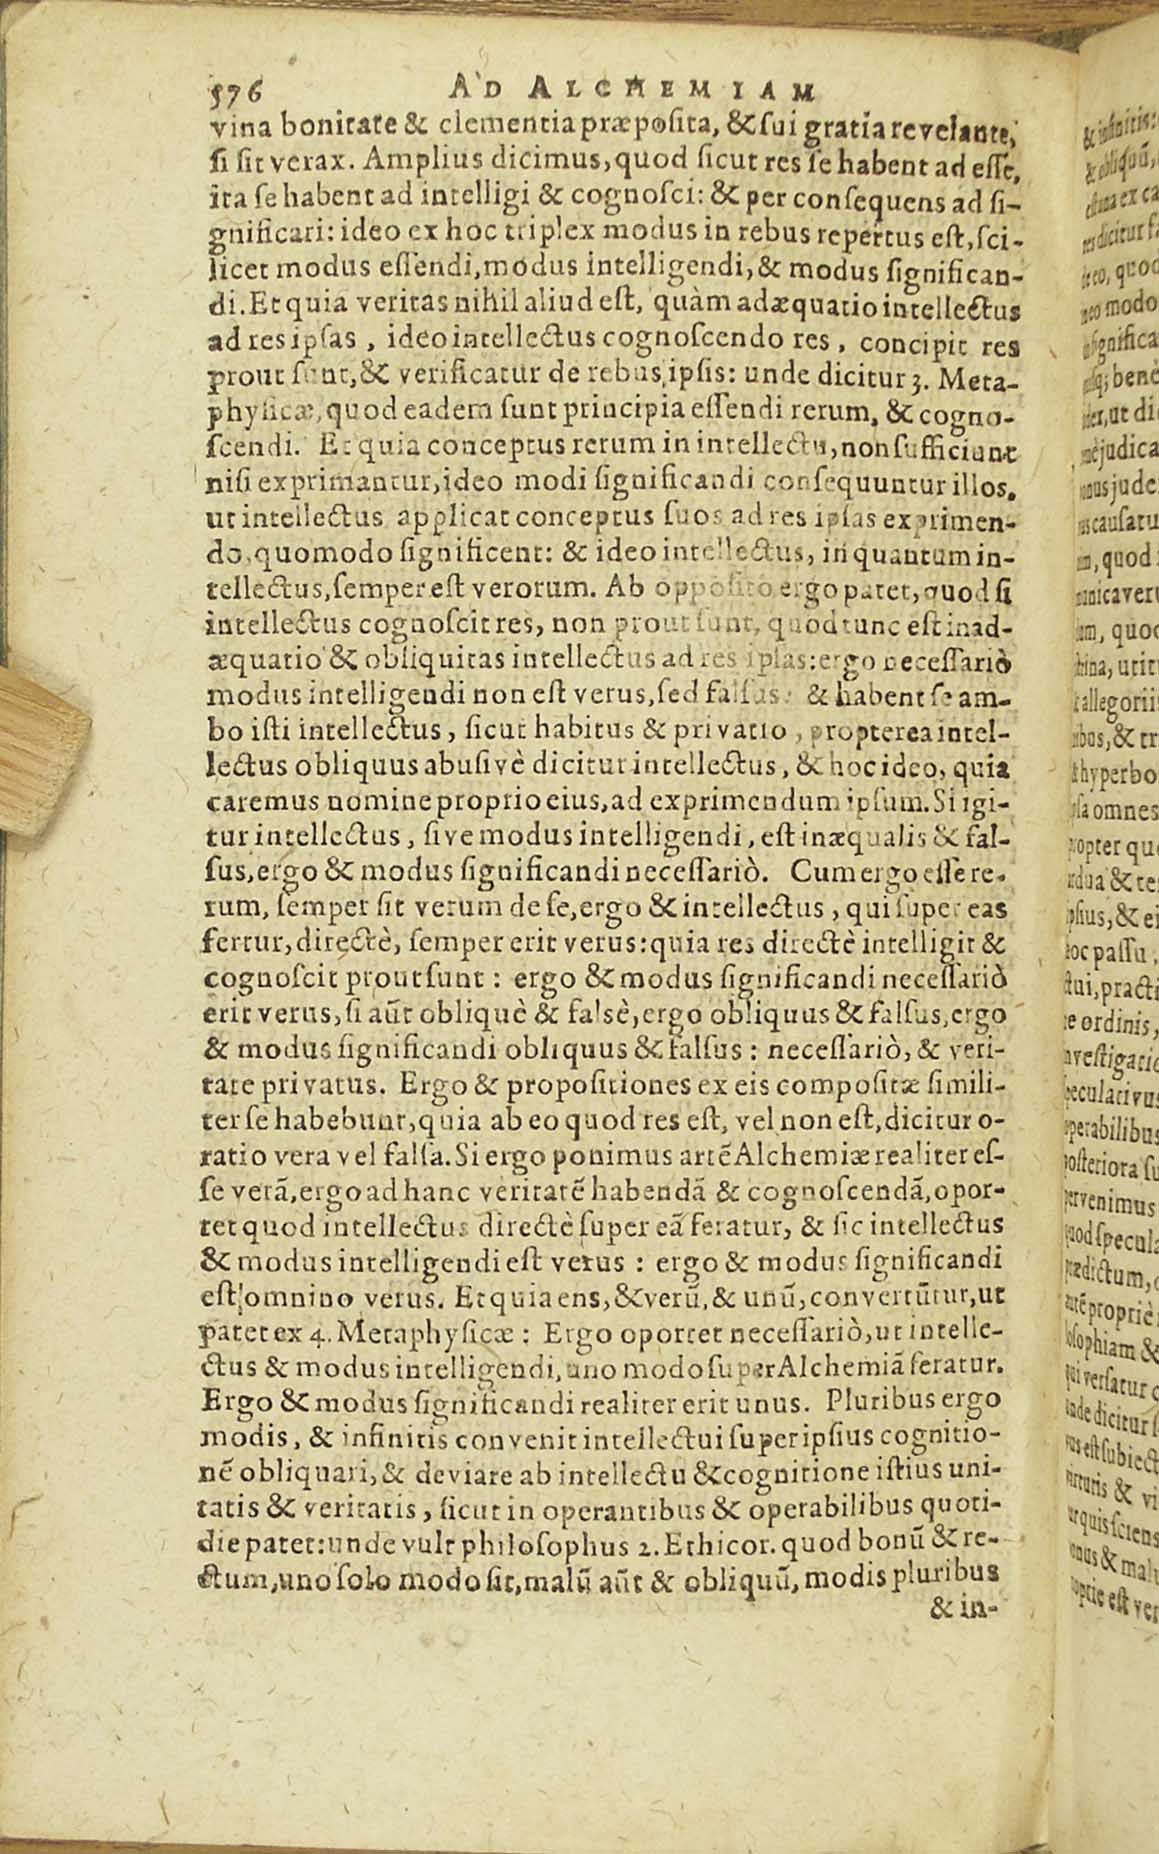 576 AD ALCHEMIAM
vina bonitate & clementia præposita, & sui gratia revelante,
si sit verax. Amplius dicimus, quod sicut res se habent ad esse,
ita se habent ad intelligi & cognosci: & per consequens ad si-
gnificari: ideo ex hoc triplex modus in rebus repertus est, sci-
licet modus essendi, modus intelligendi, & modus significan-
di. Et quia veritas nihil aliud est, quàm adæquatio intellectus
ad res ipsas, ideo intellectus cognoscendo res, concipit res
prout sunt, & verificatur de rebus ipsis: unde dicitur 3. Meta-
physicæ, quod eadem sunt principia essendi rerum, & cogno-
scendi. Et quia conceptus rerum in intellectu, non sufficiunt
nisi exprimantur, ideo modi significandi consequuntur illos.
ut intellectus applicat conceptus suos ad res ipsas exprimen-
do, quomodo significent: & ideo intellectus, in quantum in-
tellectus, semper est verorum. Ab opposito ergo patet, quod si
intellectus cognoscit res, non prout sunt, quod tunc est inad-
æquatio & obliquitas intellectus ad res ipsas: ergo necessariò
modus intelligendi non est verus, sed falsus: & habent se am-
bo isti intellectus, sicut habitus & privatio, propterea intel-
lectus obliquus abusivè dicitur intellectus, & hoc ideo, quia
caremus nomine proprio eius, ad exprimendum ipsum. Si igi-
tur intellectus, sive modus intelligendi, est inæqualis & fal-
sus, ergo & modus significandi necessariò. Cum ergo esse re-
rum, semper sit verum de se, ergo & intellectus, qui super eas
fertur, directè, semper erit verus: quia res directè intelligit &
cognoscit prout sunt: ergo & modus significandi necessariò
erit verus, si aūt obliquè & falsè, ergo obliquus & falsus, ergo
& modus significandi obliquus & falsus: necessariò, & veri-
tate privatus. Ergo & propositiones ex eis compositæ simili-
ter se habebunt, quia ab eo quod res est, vel non est, dicitur o-
ratio vera vel falsa. Si ergo ponimus artē Alchemiæ realiter es-
se verā, ergo ad hanc veritatē habendā & cognoscendā, opor-
tet quod intellectus directè super eā feratur, & sic intellectus
& modus intelligendi est verus: ergo & modus significandi
est omnino verus. Et quia ens, & verū, & unū, convertūtur, ut
patet ex 4. Metaphysicæ: Ergo oportet necessariò, ut intelle-
ctus & modus intelligendi, uno modo super Alchemiā feratur.
Ergo & modus significandi realiter erit unus. Pluribus ergo
modis, & infinitis convenit intellectui super ipsius cognitio-
nē obliquari, & deviare ab intellectu & cognitione istius uni-
tatis & veritatis, sicut in operantibus & operabilibus quoti-
die patet: unde vult philosophus 2. Ethicor. quod bonū & re-
ctum, uno solo modo sit, malū aūt & obliquū, modis pluribus
& in-